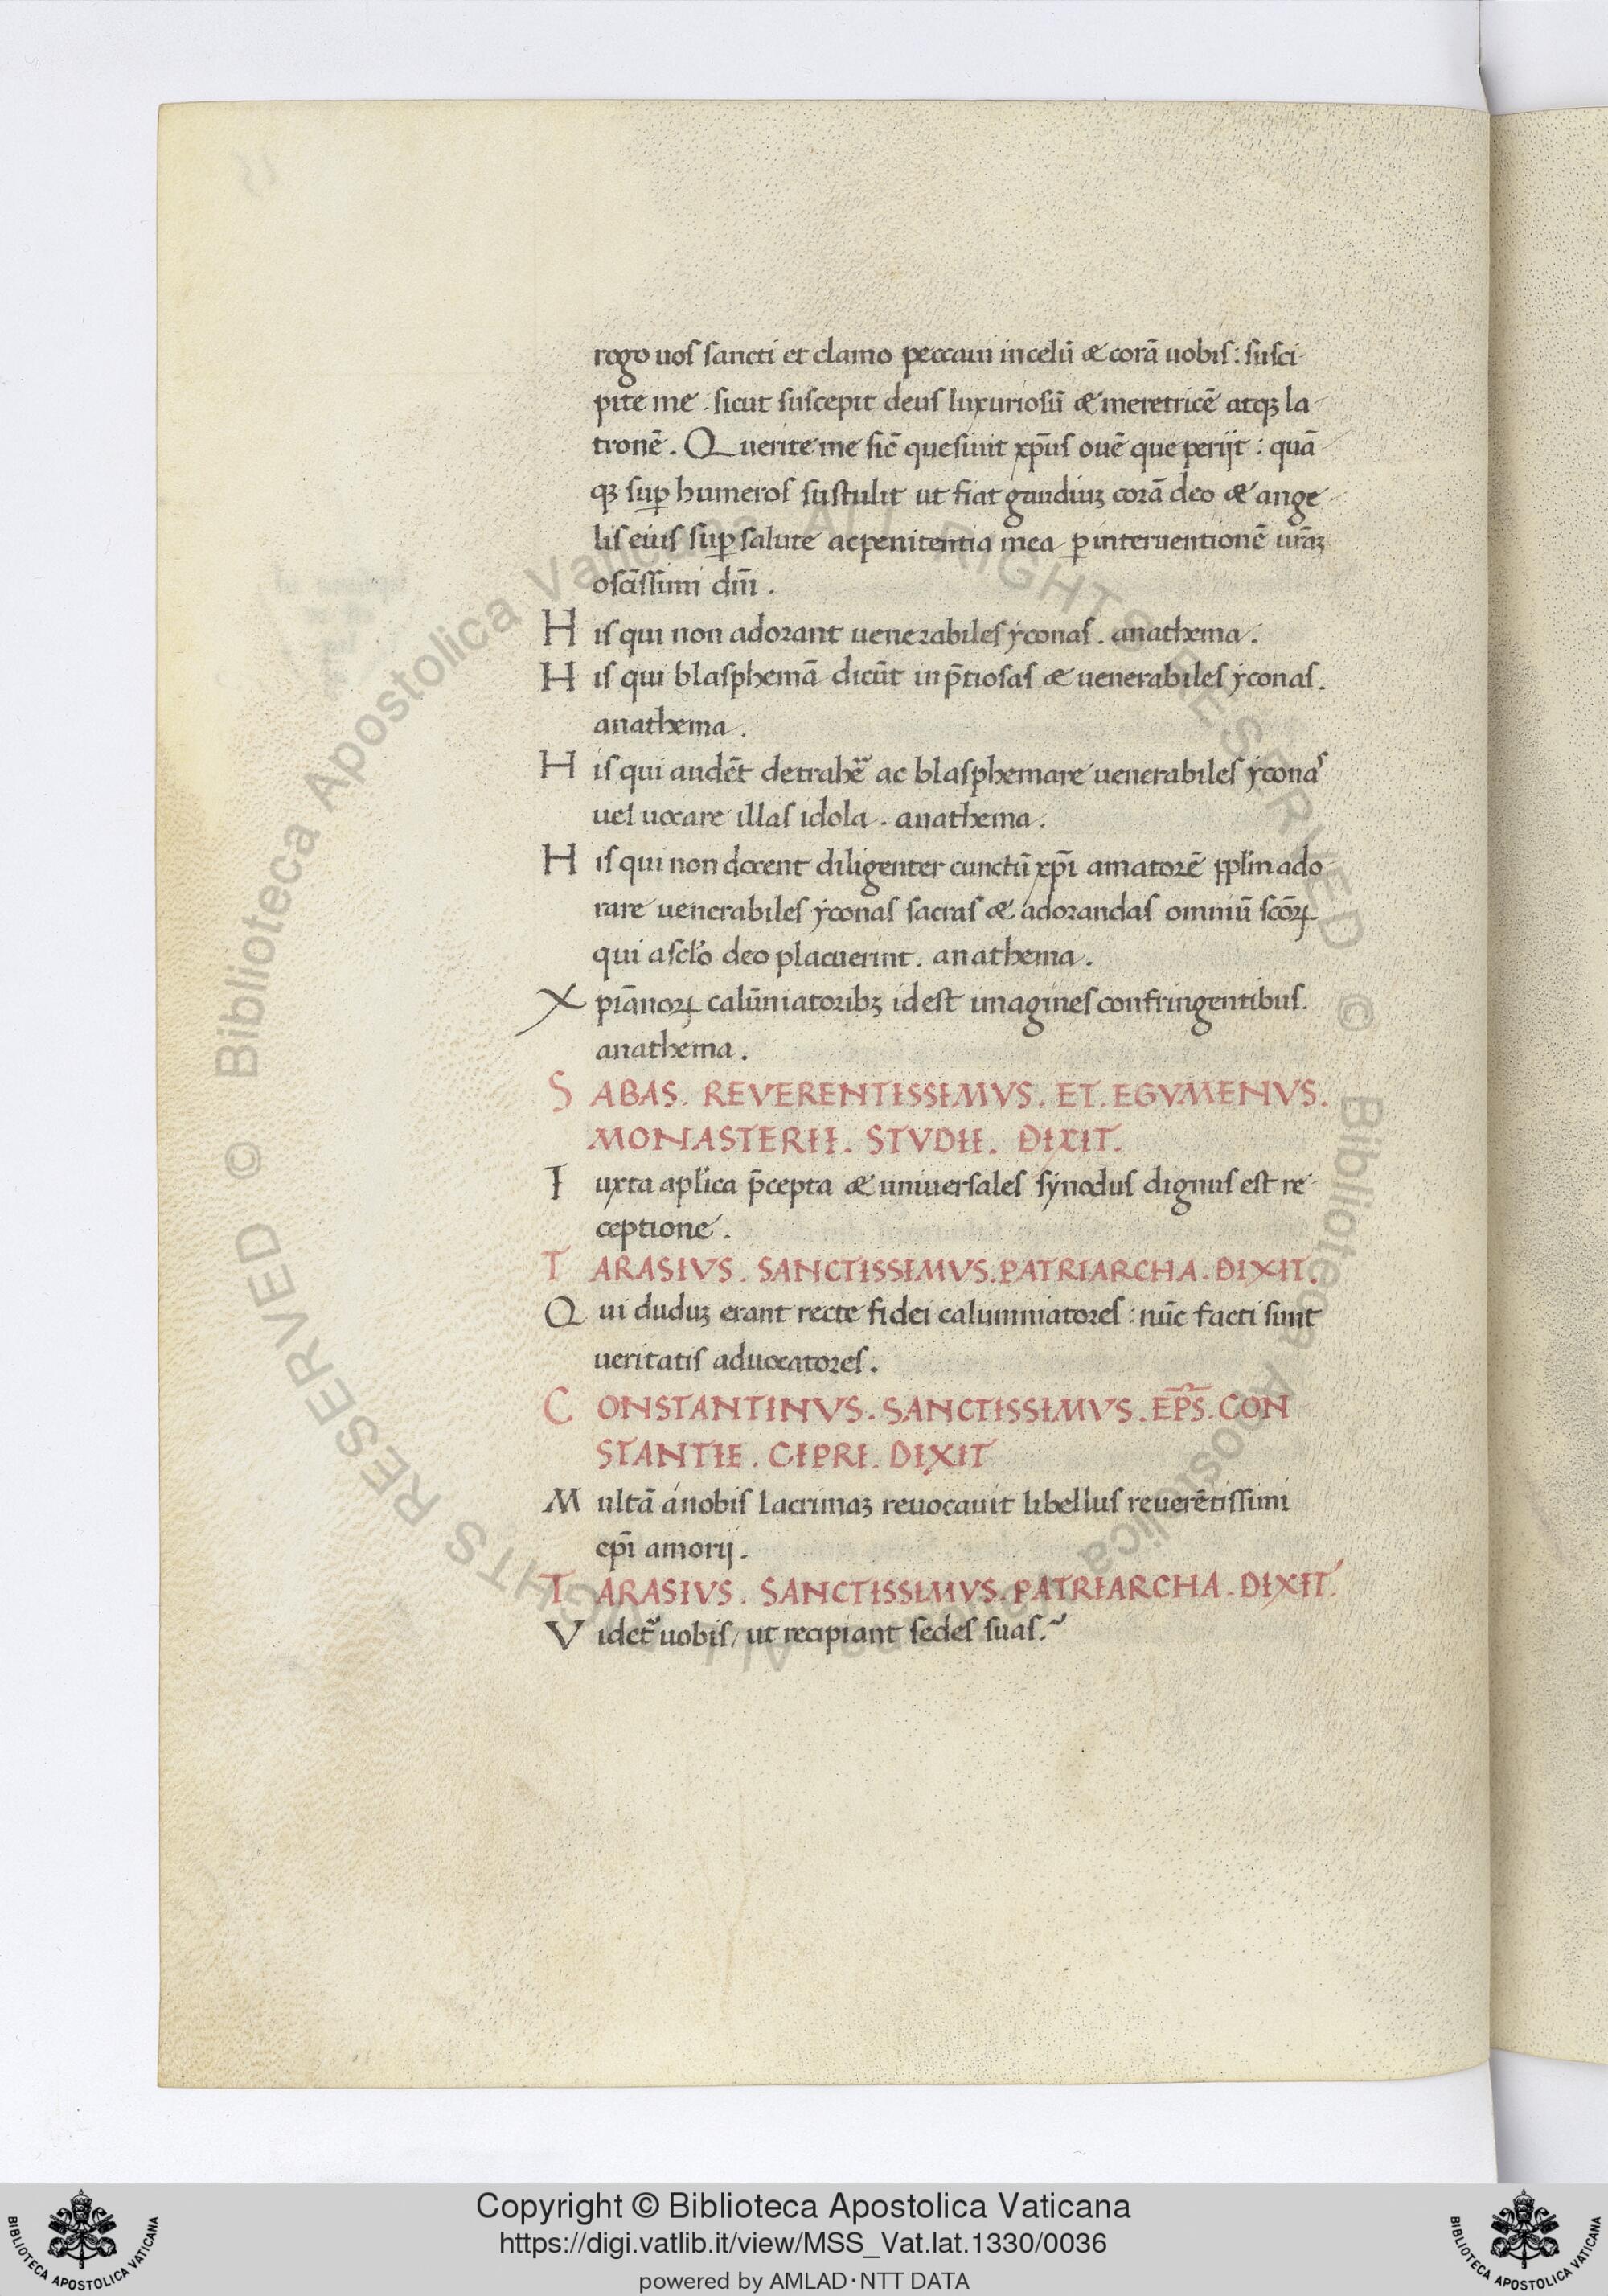 rogo uos sancti et clamo peccaui in celū & corā uobis : susci
pite me . sicut suscepit deus luxuriosū & meretricē atqꝫ la
tronē . Querite me sic̄ quesiuit xp̄us ouē que perijt : quā
qꝫ suꝑ humeros sustulit ut fiat gaudiuꝫ corā deo & ange
lis eius suꝑ salute ac penitentia mea ꝑ interuentionē ur̄aꝫ
o sc̄issimi dn̄i .
His qui non adorant uenerabiles ẏconas . anathema .
His qui blasphemā dicūt in p̄tiosas & uenerabiles ẏconas .
anathema .
His qui audēt detrahe᷑ ac blasphemare uenerabiles ẏconas
uel uocare illas idola . anathema .
His qui non docent diligenter cunctū xp̄i amatorē ado
rare uenerabiles ẏconas sacras & adorandas omniū sc̄oꝝ
qui a scl̄o deo placuerint . anathema .
Xpīanoꝝ calūniatoribꝫ id est imagines confringentibus .
anathema .
SABAS . REVERENTISSIMVS . ET . EGVMENVS .
MONASTERII . STVDII . DIXIT .
Iuxta apl̄ica p̄cepta & uniuersales sẏnodus dignus est re
ceptione .
TARASIVS . SANCTISSIMVS . PATRIARCHA . DIXIT .
Qui duduꝫ erant recte fidei calumniatores : nūc facti sunt
ueritatis aduocatores .
CONSTANTINVS . SANCTISSIMVS . EP̄S . CON
STANTIE . CIPRI . DIXIT
Multā a nobis lacrimaꝫ reuocauit libellus reuerētissimi
ep̄i amorij .
TARASIVS . SANCTISSIMVS . PATRIARCHA . DIXIT .
Videt᷑ uobis / ut recipiant sedes suas .
© Biblioteca Apostolica Vaticana ALL RIGHTS RESERVED © Biblioteca Apostolica Vaticana ALL RIGHTS RESERVED
Copyright © Biblioteca Apostolica Vaticana
https://digi.vatlib.it/view/MSS_Vat.lat.1330/0036
powered by AMLAD · NTT DATA
BIBLIOTECA APOSTOLICA VATICANA
BIBLIOTECA APOSTOLICA VATICANA